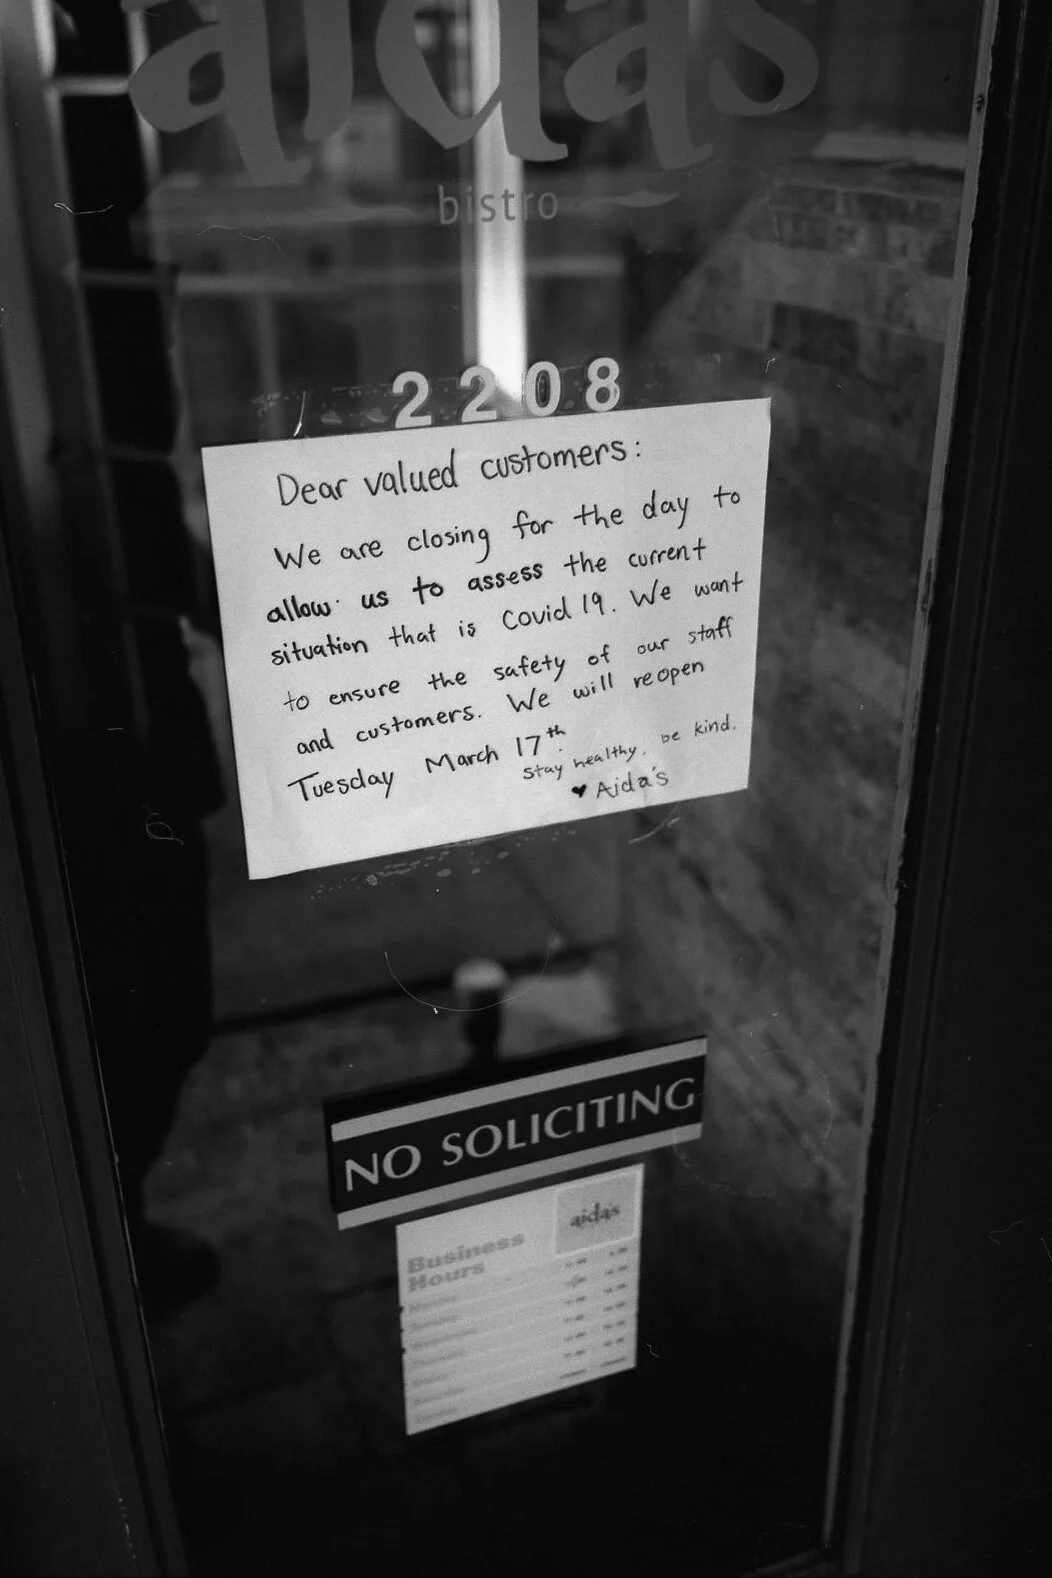 aidas
bistro
2208
Dear valued customers:
We are closing for the day to
allow us to assess the current
situation that is Covid 19. We want
to ensure the safety of our staff
and customers. We will reopen
Tuesday March 17th.
Stay healthy, be kind.
♥ Aida's
NO SOLICITING
aida's
Business
Hours